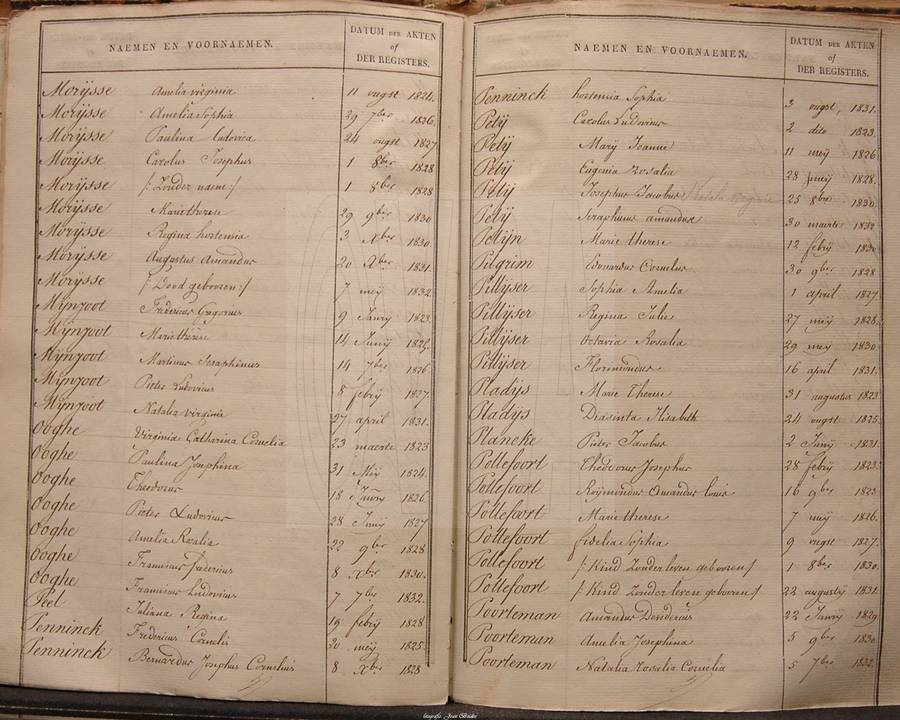 NAEMEN EN VOORNAEMEN.
DATUM DER AKTEN
of
DER REGISTERS.
Morijsse Amelia virginia 11 ougst 1824.
Morijsse Amelia Sophia 29 7ber 1826.
Morijsse Paulina ludovica 24 ougst 1827
Morijsse Carolus Josephus 1 8ber 1828
Morijsse /: Zonder naeme :/ 1 8ber 1828
Morijsse Marie therese 29 9ber 1830
Morijsse Regina hortensia 3 Xber 1830.
Morijsse Augustus Amandus 20 Xber 1831.
Morijsse /: Dood gebooren :/ 7 meij 1832
Mijngoot Fredericus Gregorius 9 Janrij 1823.
Mijngoot Marie therese 14 Junij
Mijngoot Martinus Seraphinus 14 7ber 1826
Mijngoot Pieter Ludovicus 8 febrij 1827.
Mijngoot Natalia virginie 27 april 1831.
Ooghe Virginia Catharina Cornelia 23 maerte 1823
Ooghe Paulina Josephina 31 Meij 1824.
Ooghe Theodorus 18 Janrij 1826
Ooghe Pieter Ludovicus 28 Junij 1827
Ooghe Amelia Rosalia 22 9ber 1828
Ooghe Franciscus fredericus 8 Xber 1830.
Ooghe Franciscus Ludovicus 7 7ber 1832.
Peel Juliana Regina 19 febrij 1828
Penninck Fredericus Cornelis 20 meij 1825.
Penninck Bernardus Josephus Cornelius 8 Xber 1828
NAEMEN EN VOORNAEMEN.
DATUM DER AKTEN
of
DER REGISTERS.
Penninck hortensia Sophia 3 ougst, 1831.
Petij Carolus Ludovicus 2 dito 1823.
Petij Mary Joanne 11 meij 1826
Petij Eugenia Rosalia 28 1828.
Petij Josephus Jacobus 25 8ber 1830.
Petij Seraphinus amandus 30 maerte 1832
Petijn Marie therese 12 febrij
Pilgrim Edouardus Cornelius 30 9ber 1828
Pillijser Sophia Amelia 1 april 1827.
Pillijser Regina Julie 27 meij 1828.
Pillijser Octavia Rosalia 29 meij 1830.
Pillijser Florimondus 16 april 1831.
Pladijs Marie Therese 31 augustus 1823
Pladys Elisabeth 24 ougst 1825.
Plancke Pieter Jacobus 2 Junij 1831.
Pollefoort Theodorus Josephus 28 febrij 1823.
Pollefoort Reijmondus Amandus louis 16 9ber
Pollefoort Marie therese 7 meij 1826.
Pollefoort fidelia Sophia 9 ougst 1827.
Pollefoort /: Kind Zonder leven gebooren :/ 1 8ber 1830.
Pollefoort /: Kind Zonder leven gebooren :/ 22 augustij 1831.
Poorteman Amandus Desiderius 22 Janrij 1829
Poorteman Amelia Josephina 5 9ber 1830
Poorteman Natalia Rosalia Cornelia 5 7ber 1832.